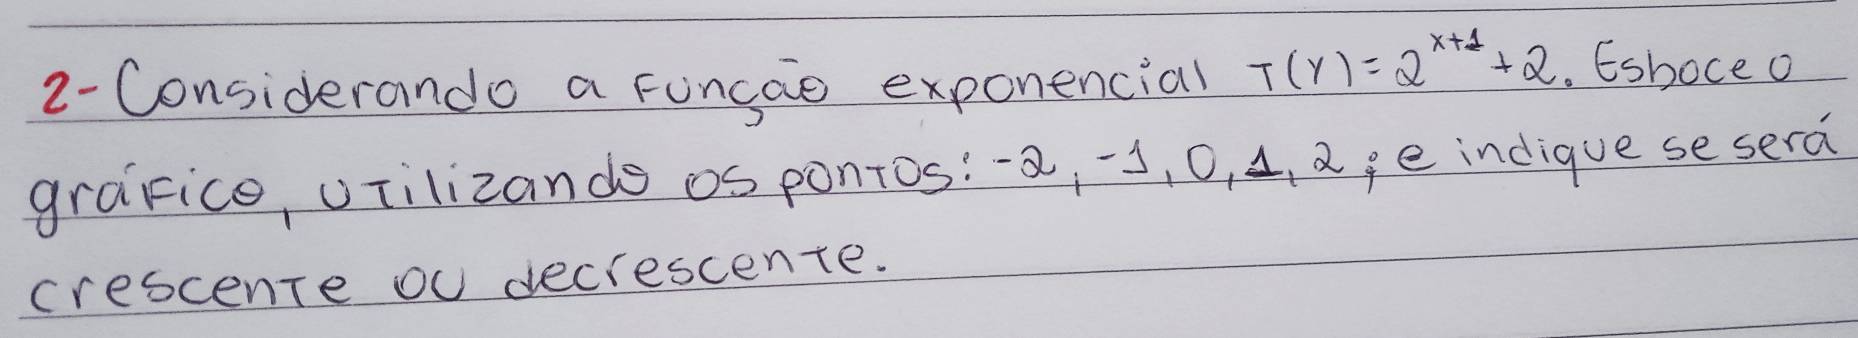 2- Considerando a função exponencial T(Y)=2^{x+1}+2. Esboce o
gráfico, utilizando os pontos: -2, -1, 0, 1, 2; e indique se será
crescente ou decrescente.